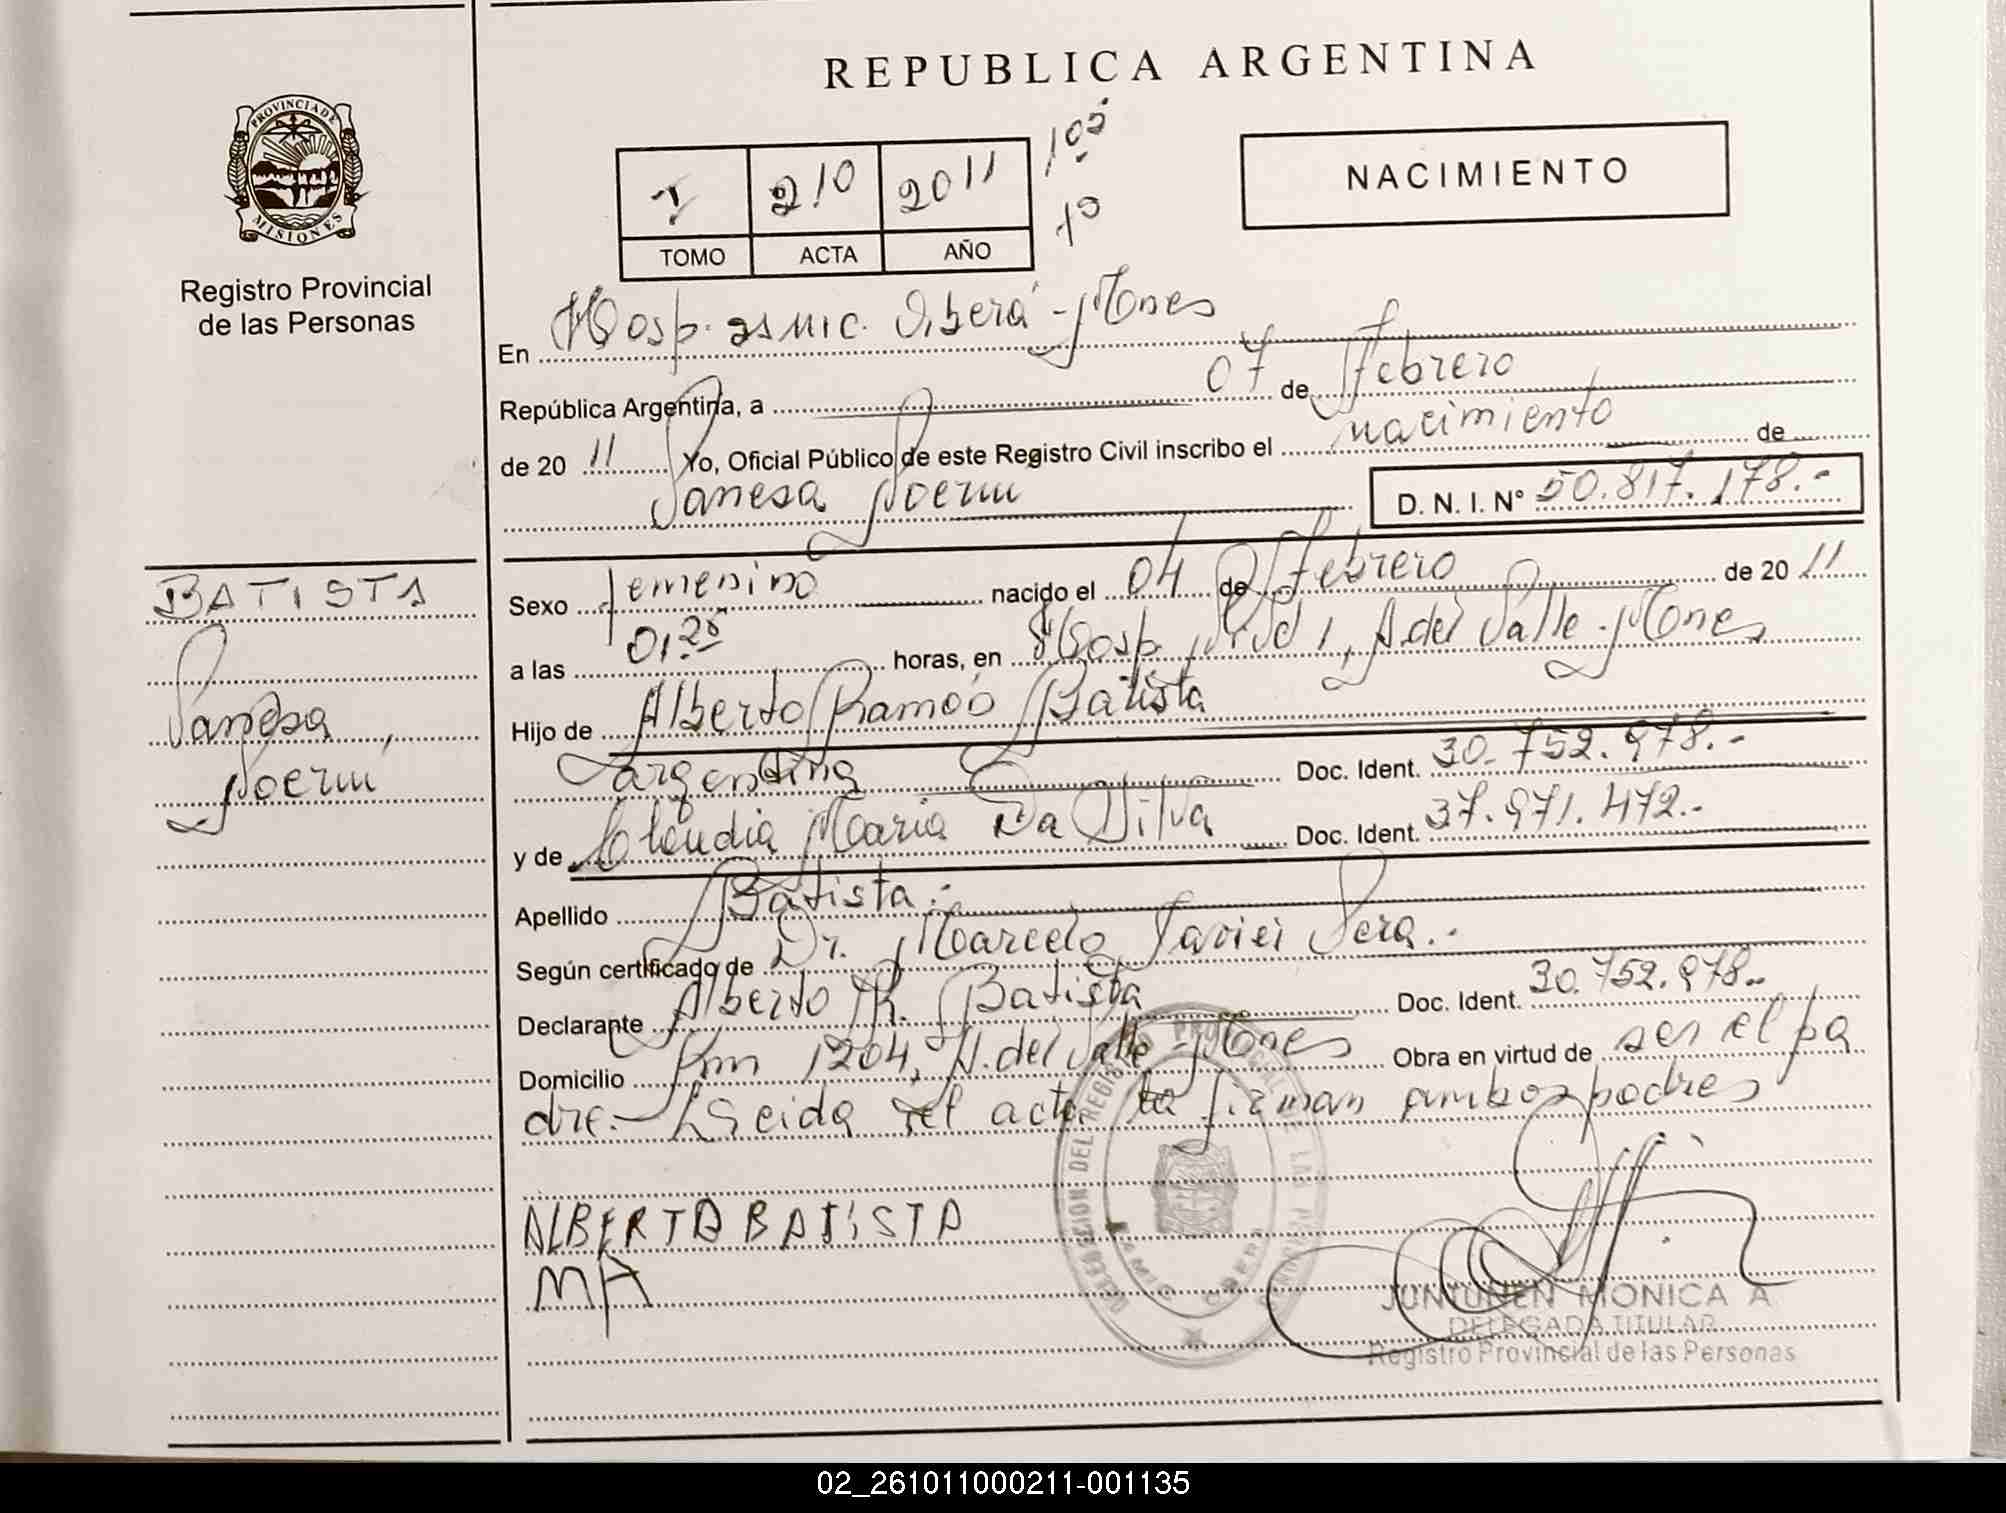 REPUBLICA ARGENTINA
PROVINCIA DE
MISIONES
Registro Provincial
de las Personas
210 2011
TOMO ACTA AÑO
105
NACIMIENTO
En Hosp. Oberá - Mones
República Argentina, a 07 de Febrero
de 20 11 Yo, Oficial Público de este Registro Civil inscribo el nacimiento de
Vanesa Noemi D. N. I. N° 50.817.178.-
BATISTA
Vanesa,
Noemi
Sexo femenino nacido el 04 de Febrero de 20 11
a las 01,25 horas, en Hosp. Nivel 1, A. del Valle - Mones
Hijo de Alberto Ramón Batista
argentina Doc. Ident. 30.752.978.-
y de Claudia Maria Da Silva Doc. Ident. 37.971.472.-
Apellido Batista.-
Según certificado de Dr. Marcelo Javier Vera.-
Declarante Alberto R. Batista Doc. Ident. 30.752.978.-
Domicilio Km 1204, A. del Valle - Mones Obra en virtud de ser el pa
dre.- Leida el acta la firman ambos padres
ALBERTO BATISTA
MA
DELEGACION DEL REGISTRO PROVINCIAL DE LAS PERSONAS
OBERA
JUNTUNEN MONICA A
DELEGADA TITULAR
Registro Provincial de las Personas
02_261011000211-001135